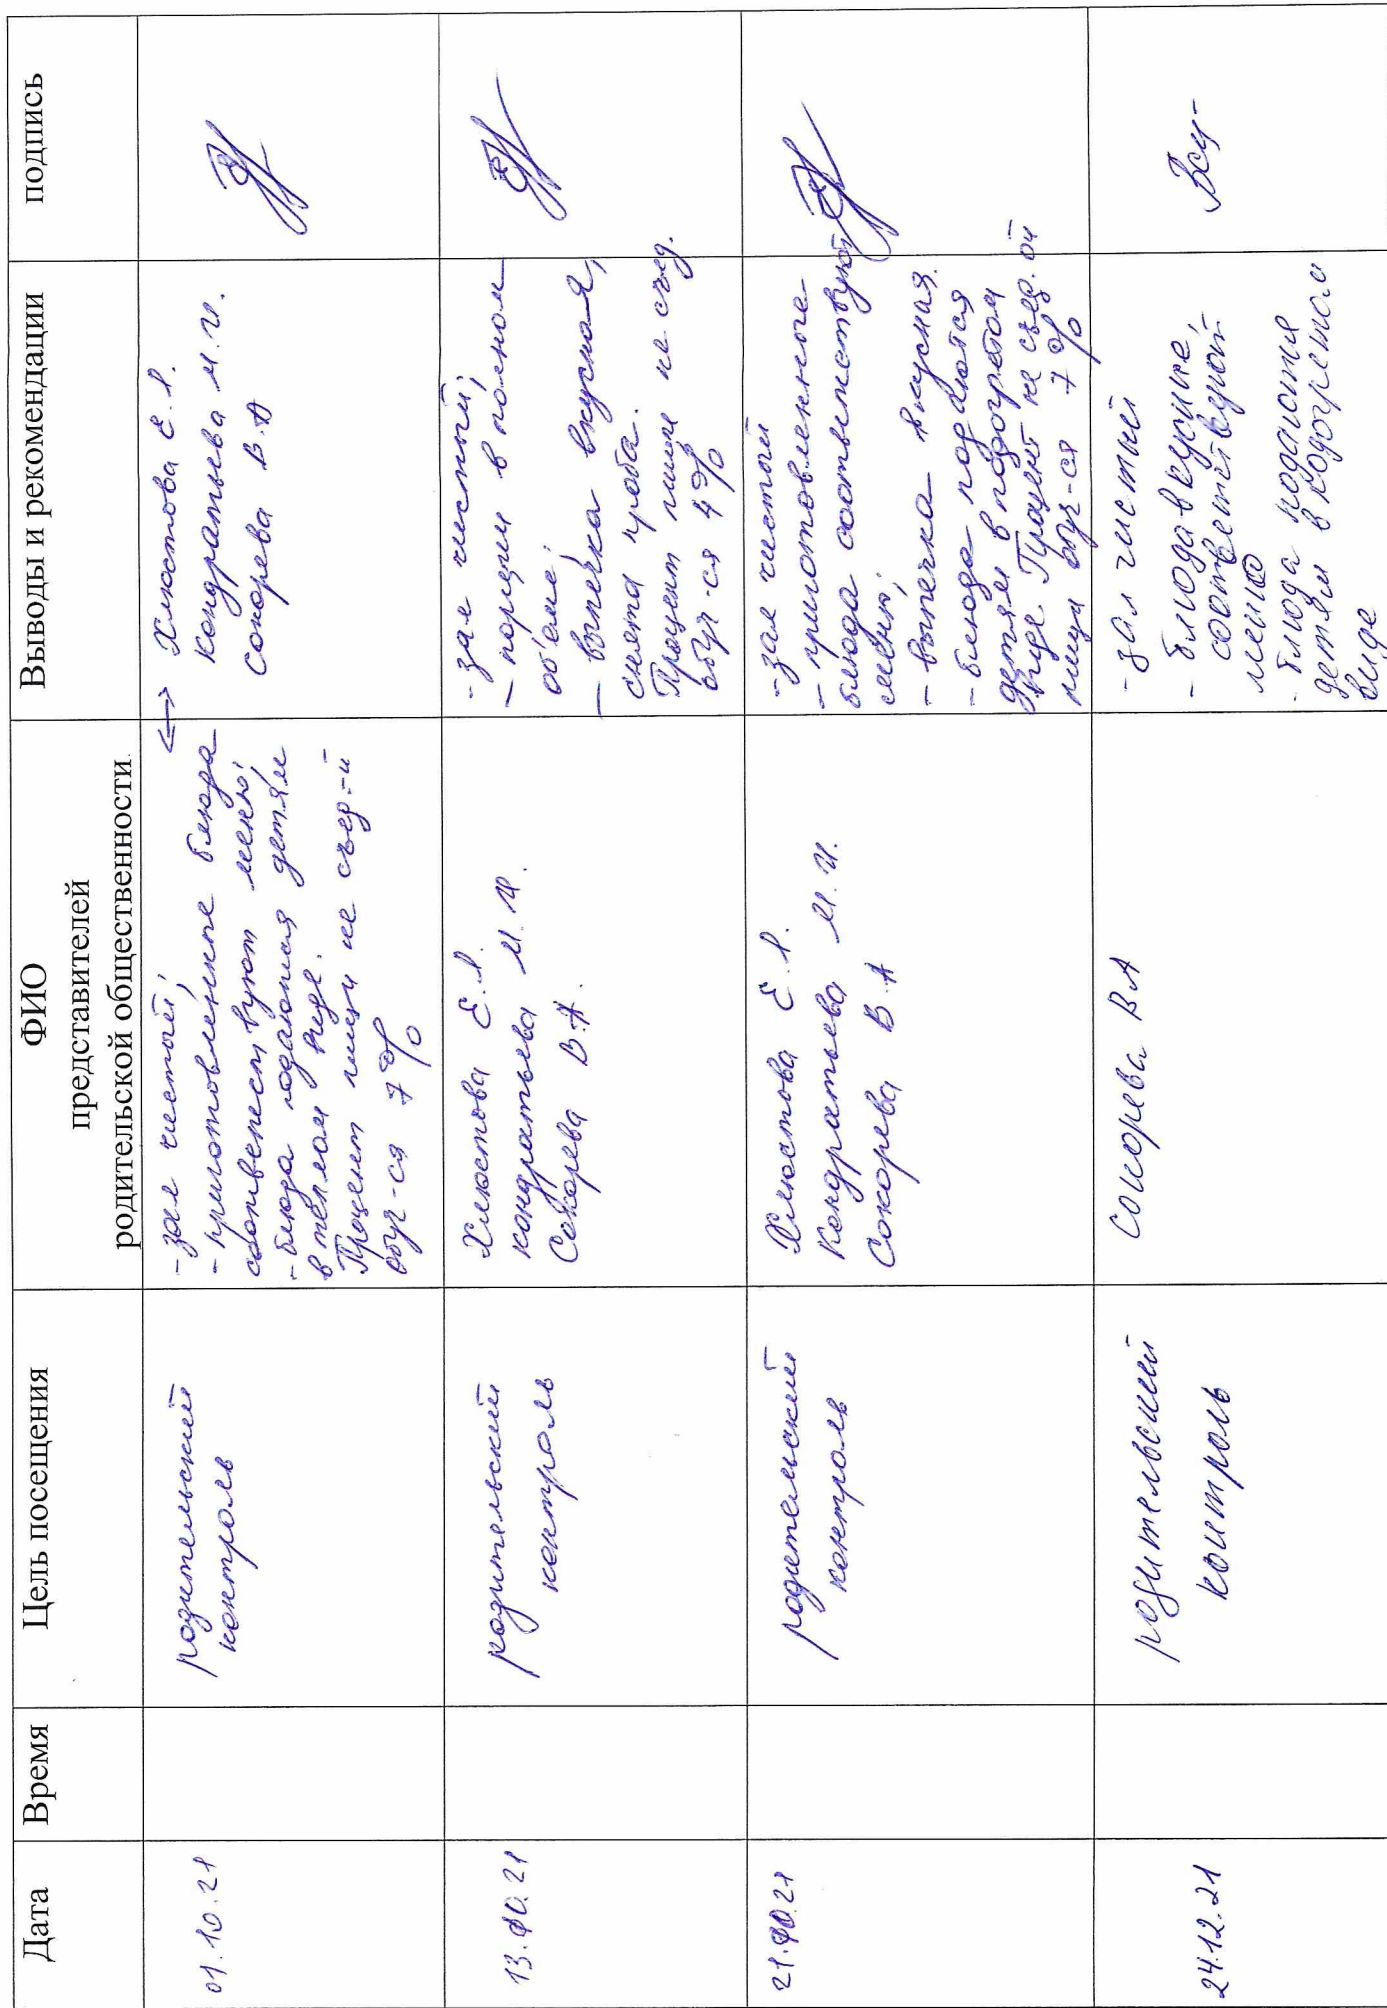 Дата
Время
Цель посещения
ФИО
представителей
родительской общественности
Выводы и рекомендации
подпись
01.10.21
родительский
контроль
- зал чистый;
- приготовленные блюда
соответствуют меню;
- блюда подаются детям
в теплом виде.
Процент пищи не съед-й
обуч-ся 7%
↔ Хлюстова Е.А.
Кондратьева М.И.
Сокорева В.А
13.10.21
родительский
контроль
Хлюстова Е.А.
Кондратьева М.И.
Сокорева В.А.
- зал чистый;
- порции в полном
объёме;
- выпечка вкусная,
снята проба.
Процент пищи не съед.
обуч-ся 4%
21.10.21
родительский
контроль
Хлюстова Е.А.
Кондратьева М.И.
Сокорева В.А
- зал чистый
- приготовленные
блюда соответствуют
меню;
- выпечка вкусная.
- блюда подаются
детям в подогретом
виде. Процент не съед.ой
пищи обуч-ся 7%
24.12.21
родительский
контроль
Сокорева ВА
- зал чистый
- блюда вкусные,
соответствуют
меню
- блюда подаются
детям в подогретом
виде